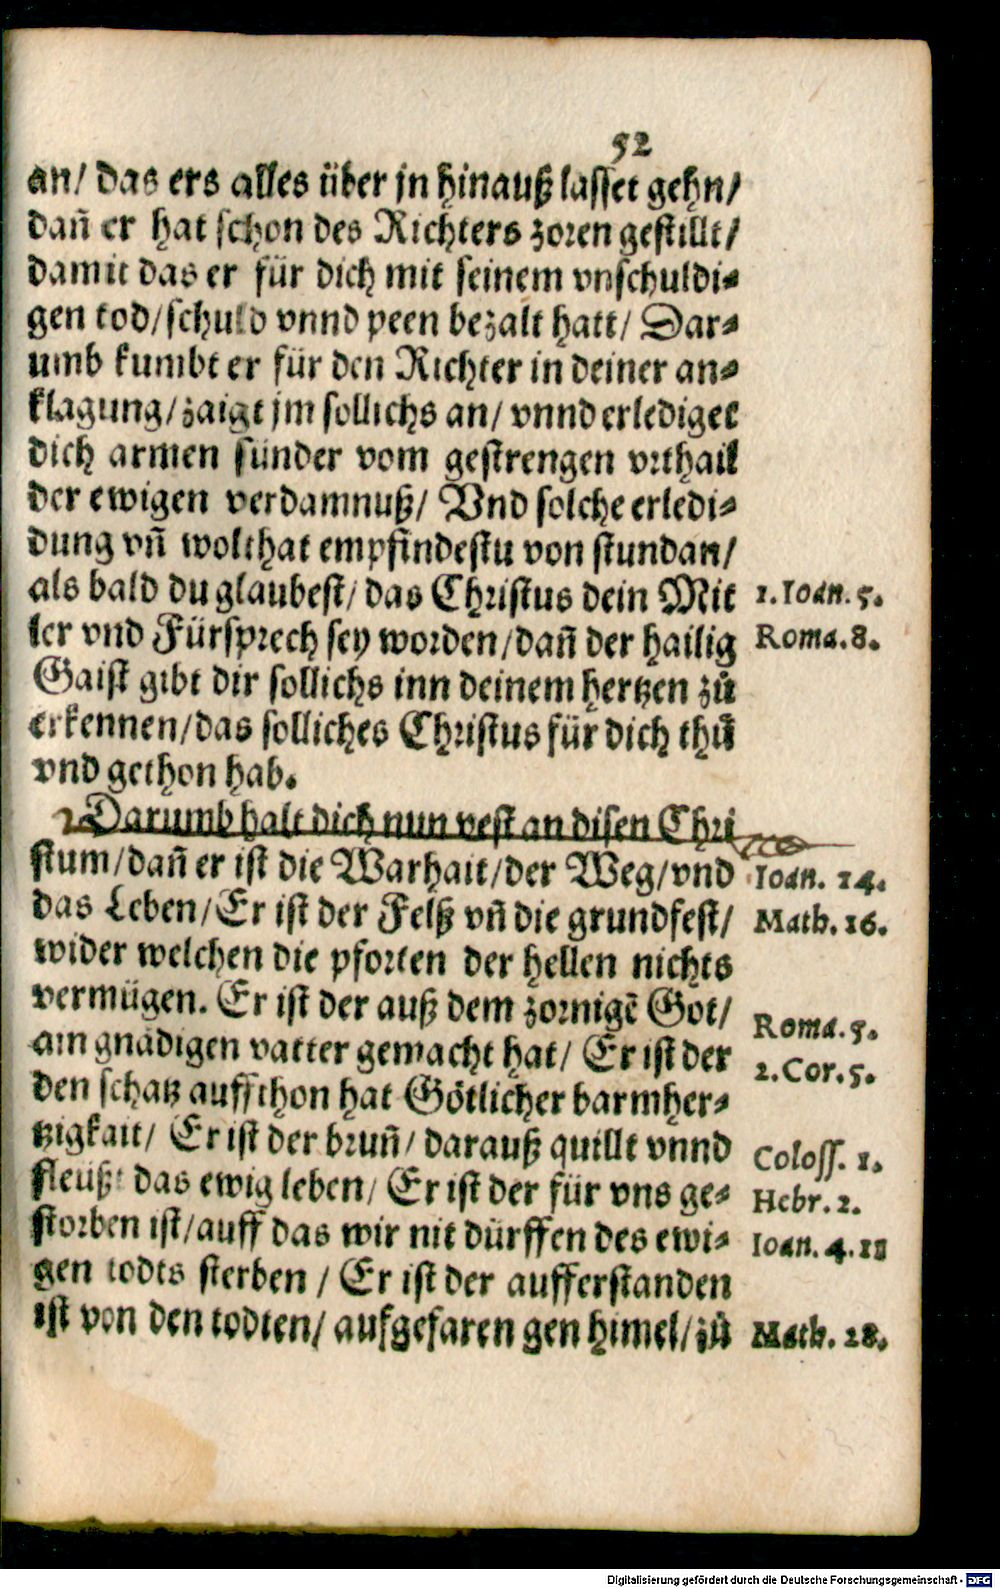 52
an/ das ers alles über jn hinauß lasset gehn/
dañ er hat schon des Richters zoren gestillt/
damit das er für dich mit seinem vnschuldi⸗
gen tod/schuld vnnd peen bezalt hatt/ Dar⸗
umb kumbt er für den Richter in deiner an⸗
klagung/zaigt jm sollichs an/ vnnd erlediget
dich armen sünder vom gestrengen vrthail
der ewigen verdamnuß/ Vnd solche erledi⸗
dung vñ wolthat empfindestu von stundan/
als bald du glaubest/ das Christus dein Mit 1. Ioan. 5.
ler vnd Fürsprech sey worden/dañ der hailig Roma. 8.
Gaist gibt dir sollichs inn deinem hertzen zů
erkennen/das solliches Christus für dich thů
vnd gethon hab.
Darumb halt dich nun vest an disen Chri
stum/dañ er ist die Warhait/der Weg/vnd Ioan. 14.
das Leben/Er ist der Felß vñ die grundfest/ Math. 16.
wider welchen die pforten der hellen nichts
vermügen. Er ist der auß dem zornigē Got/ Roma. 5.
ain gnädigen vatter gemacht hat/ Er ist der 2. Cor. 5.
den schatz auffthon hat Götlicher barmher⸗
tzigkait/ Er ist der bruñ/ darauß quillt vnnd Coloss. 1.
fleüßt das ewig leben/ Er ist der für vns ge⸗ Hebr. 2.
storben ist/auff das wir nit dürffen des ewi⸗ Ioan. 4. 11
gen todts sterben / Er ist der aufferstanden
ist von den todten/ aufgefaren gen himel/zů Math. 28.
Digitalisierung gefördert durch die Deutsche Forschungsgemeinschaft - DFG